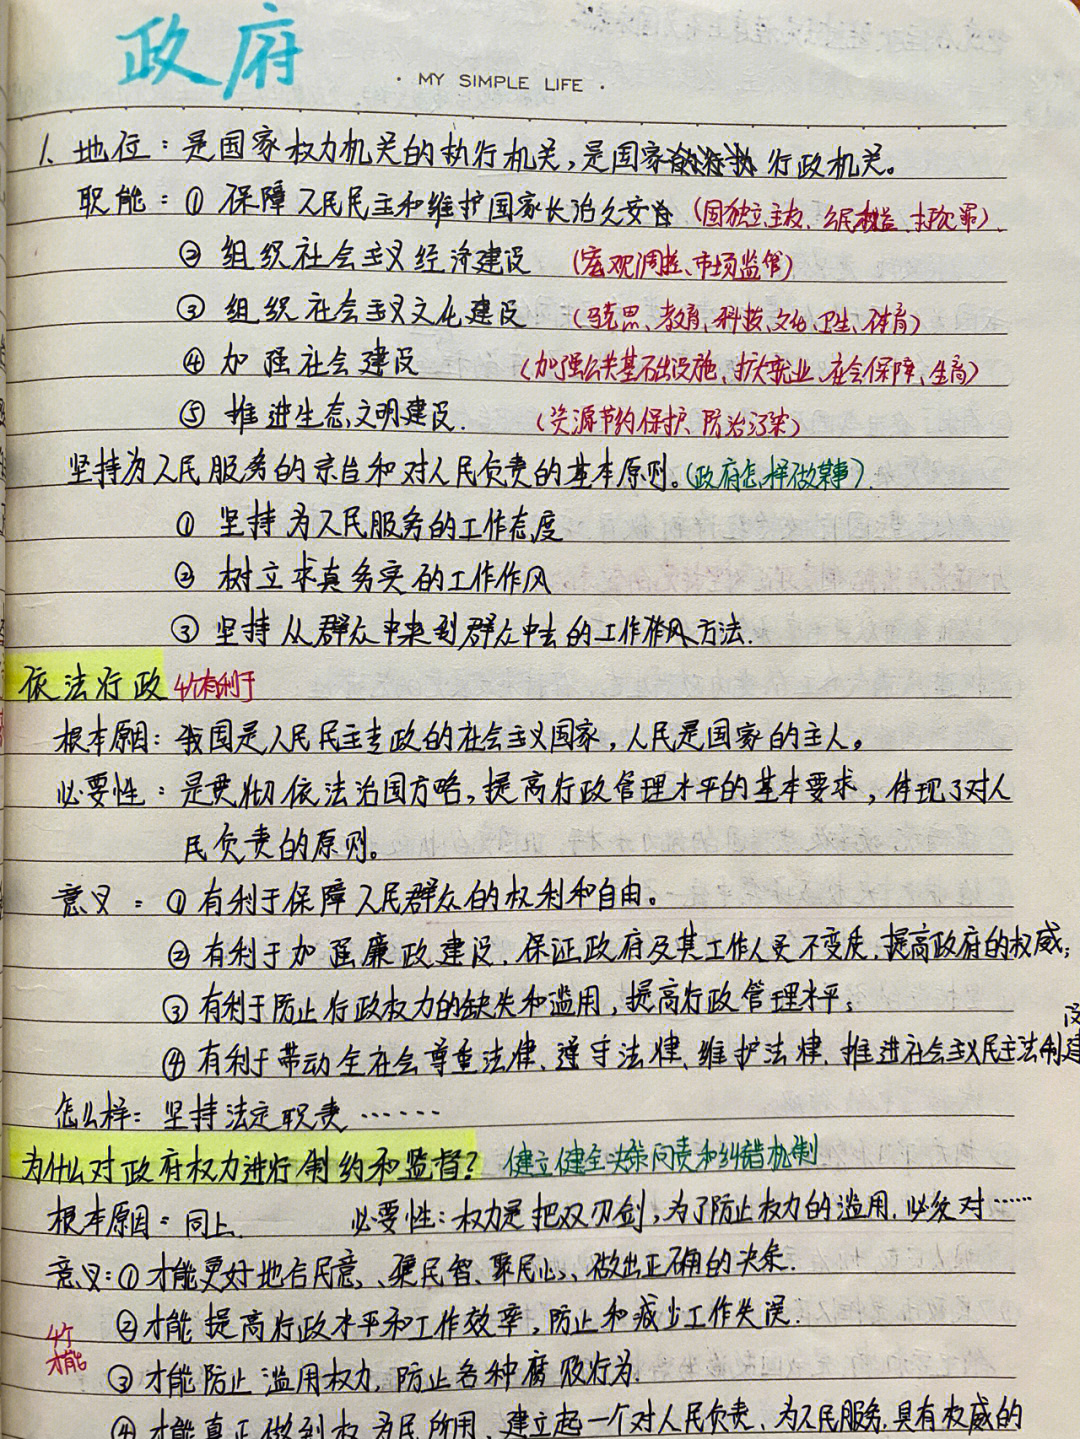 政府
· MY SIMPLE LIFE ·
1. 地位：是国家权力机关的执行机关，是国家行政机关。
职能：① 保障人民民主和维护国家长治久安（国独立主权、公民权益、打犯罪）
② 组织社会主义经济建设（宏观调控、市场监管）
③ 组织社会主义文化建设（马克思、教育、科技、文化、卫生、体育）
④ 加强社会建设（加强公共基础设施、扩大就业、社会保障、生育）
⑤ 推进生态文明建设.（资源节约保护、防治污染）
坚持为人民服务的宗旨和对人民负责的基本原则。（政府怎样做某事）
① 坚持为人民服务的工作态度
② 树立求真务实的工作作风
③ 坚持从群众中来到群众中去的工作方法.
依法行政 4个有利于
根本原因：我国是人民民主专政的社会主义国家，人民是国家的主人。
必要性：是贯彻依法治国方略，提高行政管理水平的基本要求，体现了对人
民负责的原则。
意义：① 有利于保障人民群众的权利和自由。
② 有利于加强廉政建设、保证政府及其工作人员不变质，提高政府的权威；
③ 有利于防止行政权力的缺失和滥用，提高行政管理水平；
④ 有利于带动全社会尊重法律、遵守法律、维护法律、推进社会主义民主法制建
怎么样：坚持法定职责……
为什么对政府权力进行制约和监督？ 健立健全决策问责和纠错机制
根本原因：同上. 必要性：权力是把双刃剑，为了防止权力的滥用，必须对……
意义：① 才能更好地合民意、集民智、聚民心、做出正确的决策.
② 才能提高行政水平和工作效率，防止和减少工作失误.
4个
才能
③ 才能防止滥用权力，防止各种腐败行为.
④ 才能真正做到权为民所用，建立起一个对人民负责、为人民服务、具有权威的